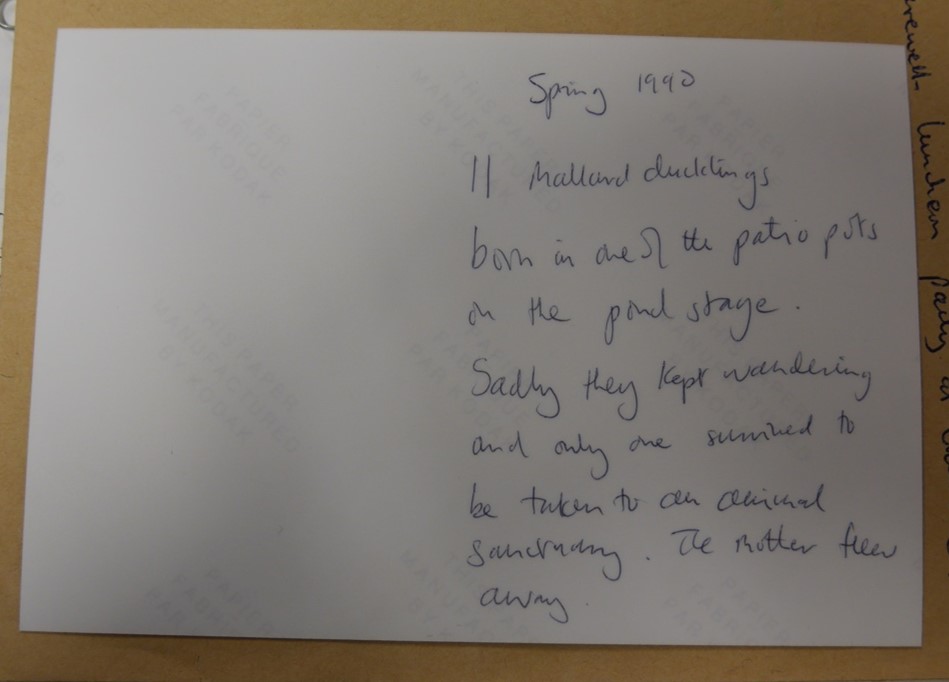 Spring 1990
11 Mallard ducklings
born in one of the patio pots
on the pond stage.
Sadly they kept wandering
and only one survived to
be taken to an animal
sanctuary. The mother flew
away.
luncheon party at